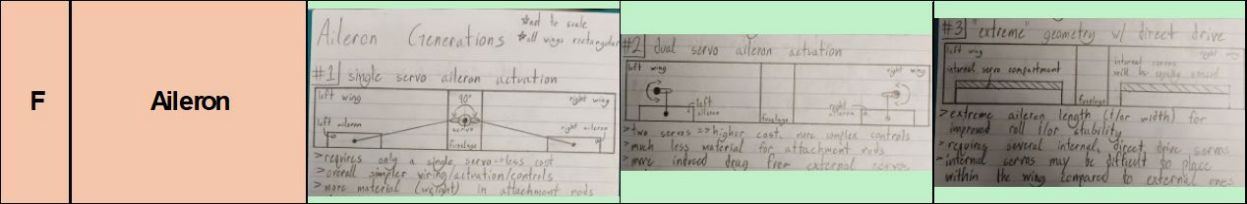 F
Aileron
Aileron Generations
*not to scale
*all wings rectangular
#1 single servo aileron actuation
left wing
90°
right wing
left aileron
servo
right aileron
fuselage
>requires only a single servo→less cost
>overall simpler wiring/actuation/controls
>more material (weight) in attachment rods
#2 dual servo aileron actuation
left wing
right wing
left aileron
right aileron
fuselage
>two servos => higher cost, more complex controls
>much less material for attachment rods
>more induced drag from external servos
#3 "extreme" geometry w/ direct drive
left wing
right wing
internal servo compartment
internal servos
will be equally spaced
fuselage
>extreme aileron length (&/or width) for
improved roll &/or stability
>requires several internal, direct drive servos
>internal servos may be difficult to place
within the wing compared to external ones